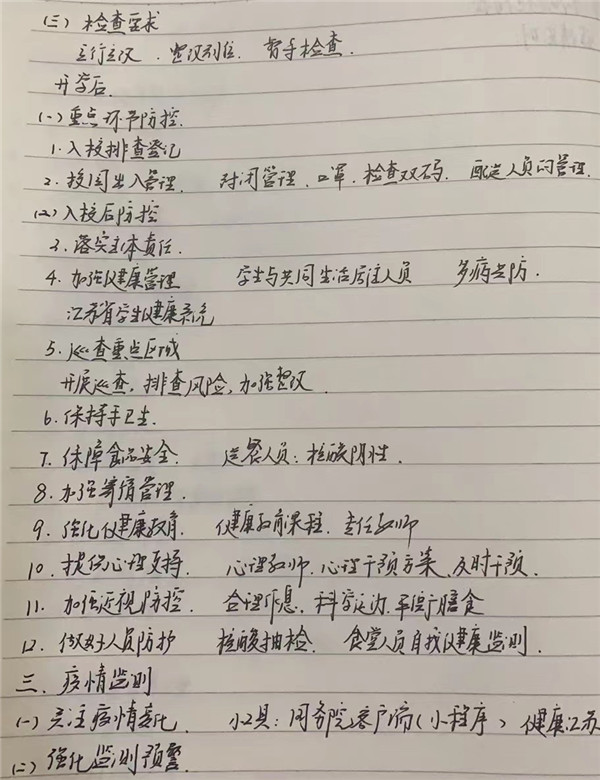 (三) 检查要求
立行立改．整改到位．暂手检查．
开学后．
(一) 重点环节防控．
1．入校排查登记
2．校园出入管理． 封闭管理．口罩．检查双码． 配送人员的管理．
(二) 入校后防控
3．落实主体责任．
4．加强健康管理 学生与共同生活居住人员 多病共防．
江苏省学生健康系统
5．巡查重点区域
开展巡查，排查风险，加强整改．
6．保持手卫生．
7．保障食品安全． 送餐人员：核酸阴性．
8．加强舆情管理．
9．强化健康教育． 健康教育课程．责任教师
10．提供心理支持． 心理教师．心理干预方案、及时干预．
11．加强近视防控． 合理作息．科学运动．平衡膳食
12．做好人员防护 核酸抽检． 食堂人员自我健康监测．
三．疫情监测
(一) 关注疫情变化． 小工具：国务院客户端(小程序) 健康江苏
(二) 强化监测预警．